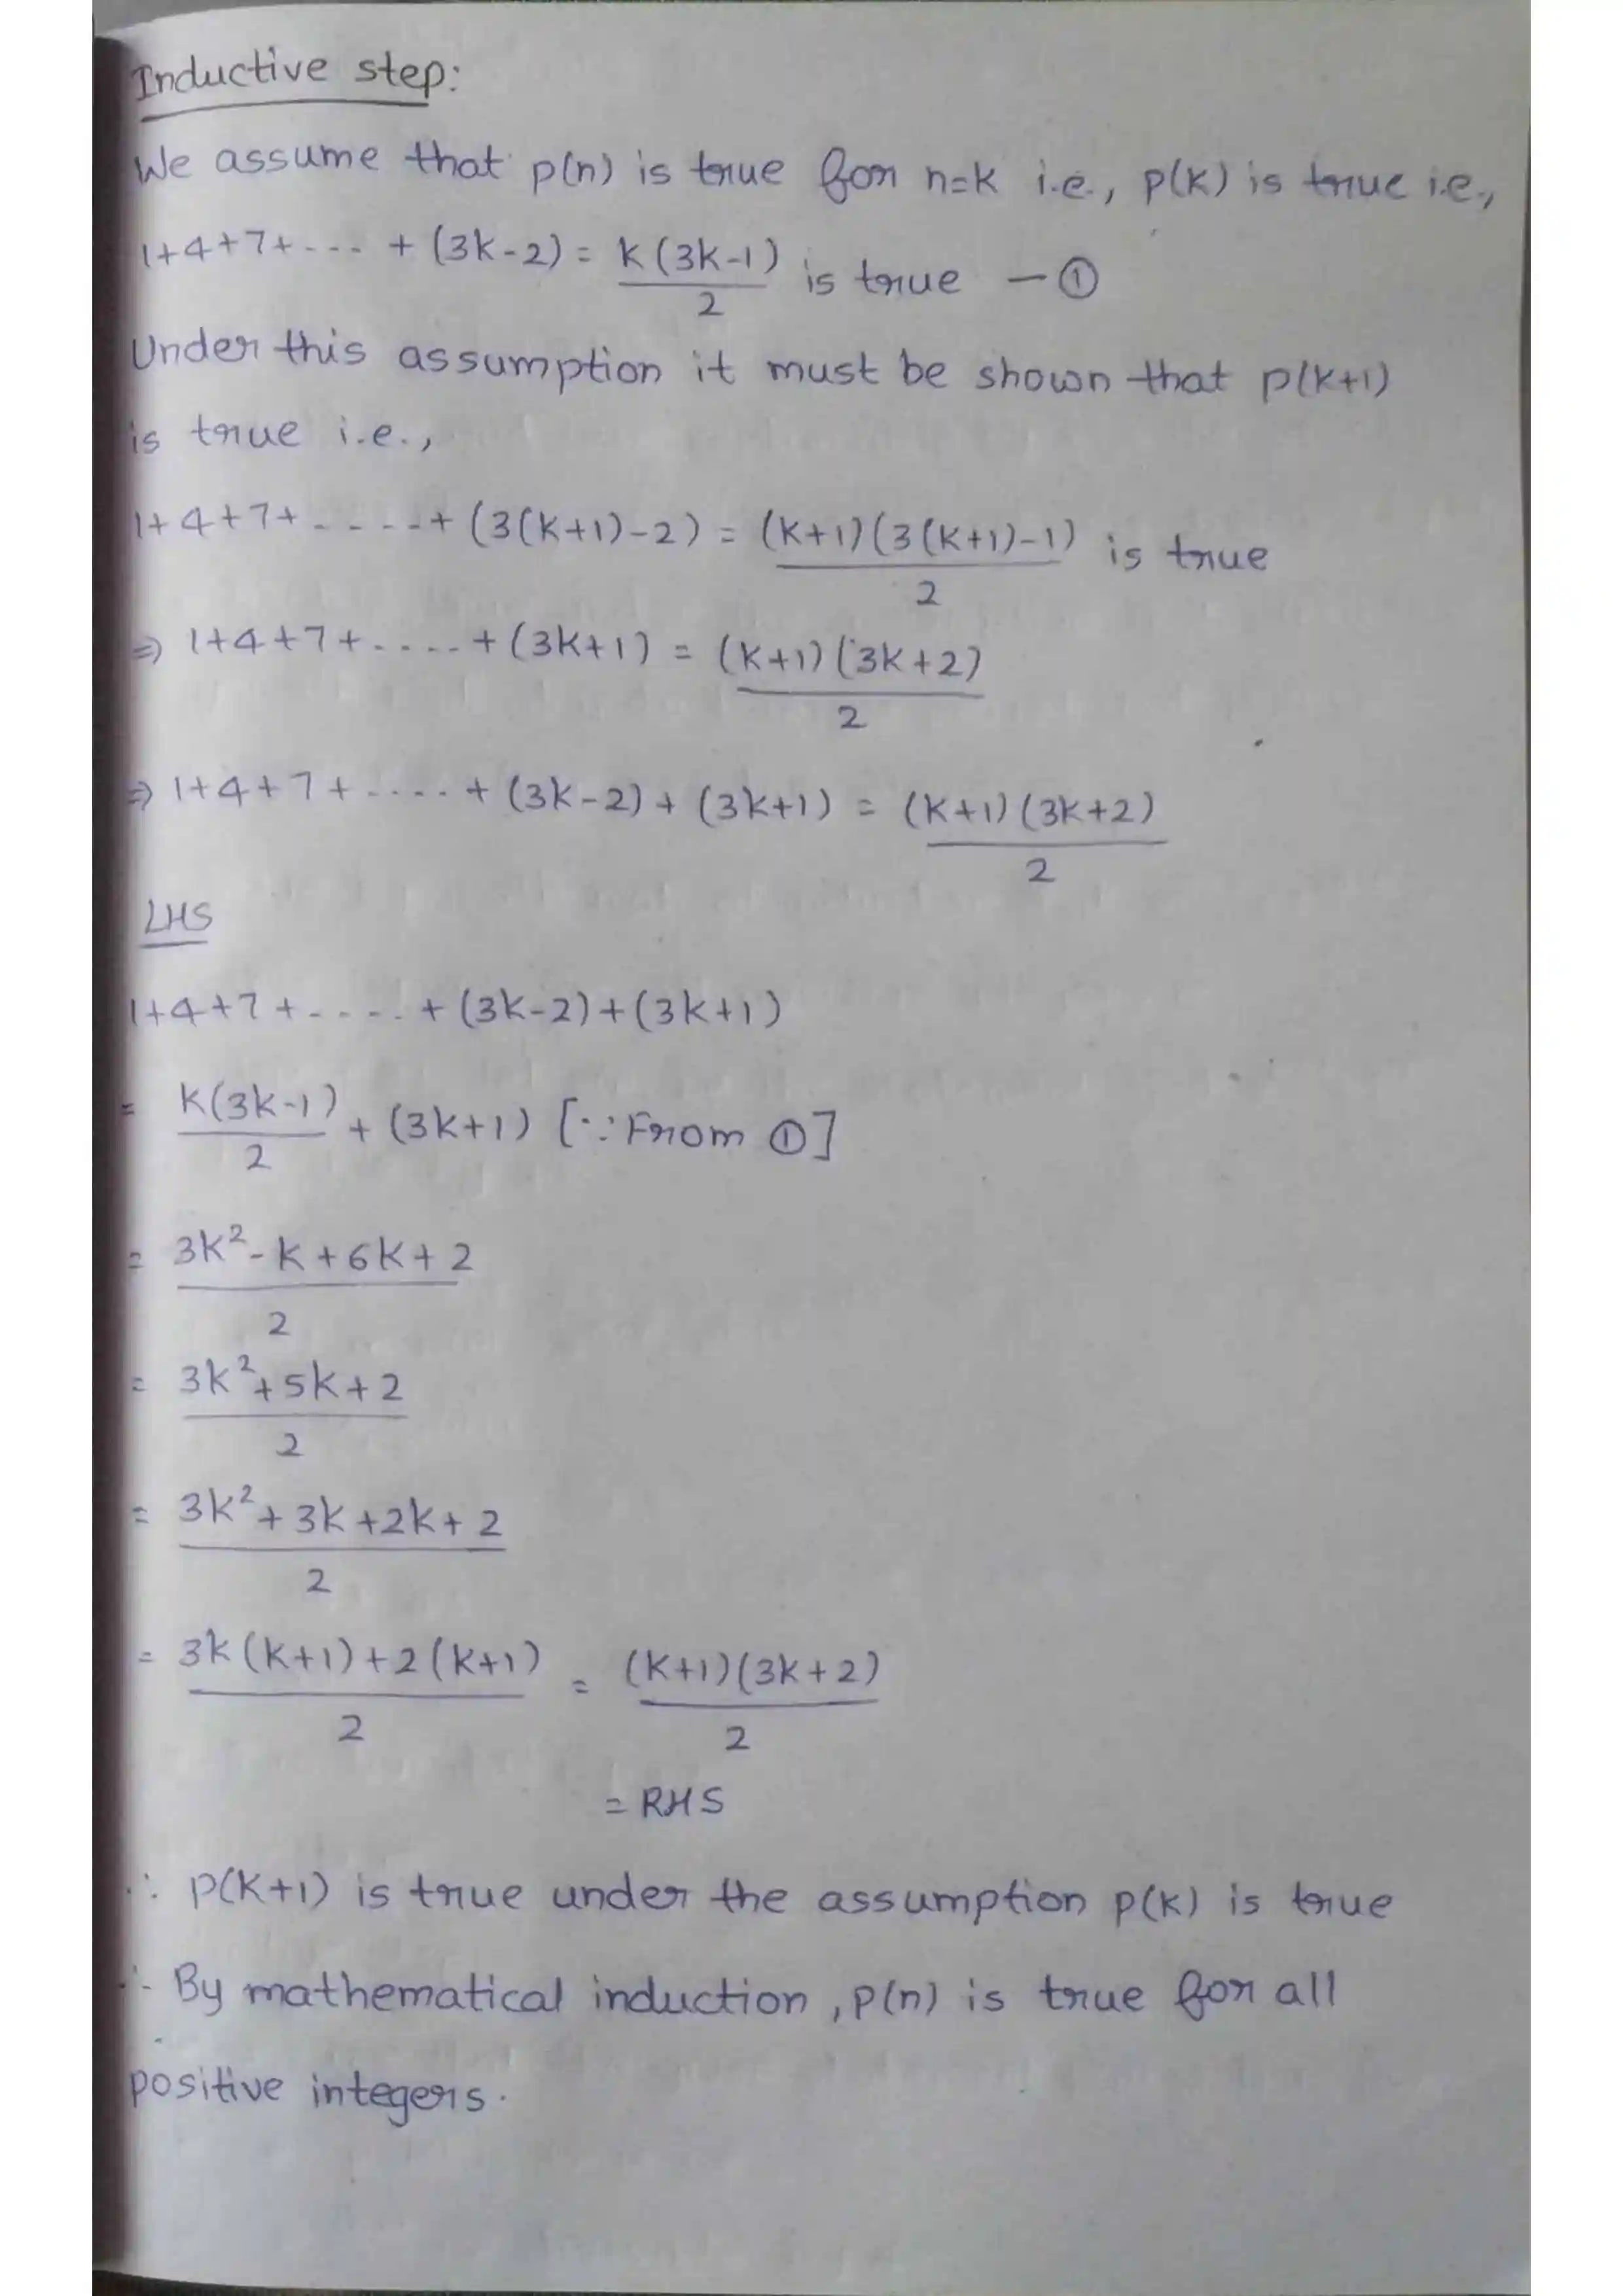 Inductive step:
We assume that p(n) is true for n=k i.e., p(k) is true i.e.,
1+4+7+---- + (3k-2) = k(3k-1)/2 is true — ①
Under this assumption it must be shown that p(k+1)
is true i.e.,
1+4+7+-----+ (3(k+1)-2) = (k+1)(3(k+1)-1)/2 is true
⇒ 1+4+7+.....+(3k+1) = (k+1)(3k+2)/2
⇒ 1+4+7+.....+ (3k-2)+ (3k+1) = (k+1)(3k+2)/2
LHS
1+4+7+-----+ (3k-2)+(3k+1)
= k(3k-1)/2 + (3k+1) [∵ From ①]
= 3k²-k+6k+2/2
= 3k²+5k+2/2
= 3k²+3k+2k+2/2
= 3k(k+1)+2(k+1)/2 = (k+1)(3k+2)/2
= RHS
∴ p(k+1) is true under the assumption p(k) is true
∴ By mathematical induction, p(n) is true for all
positive integers.